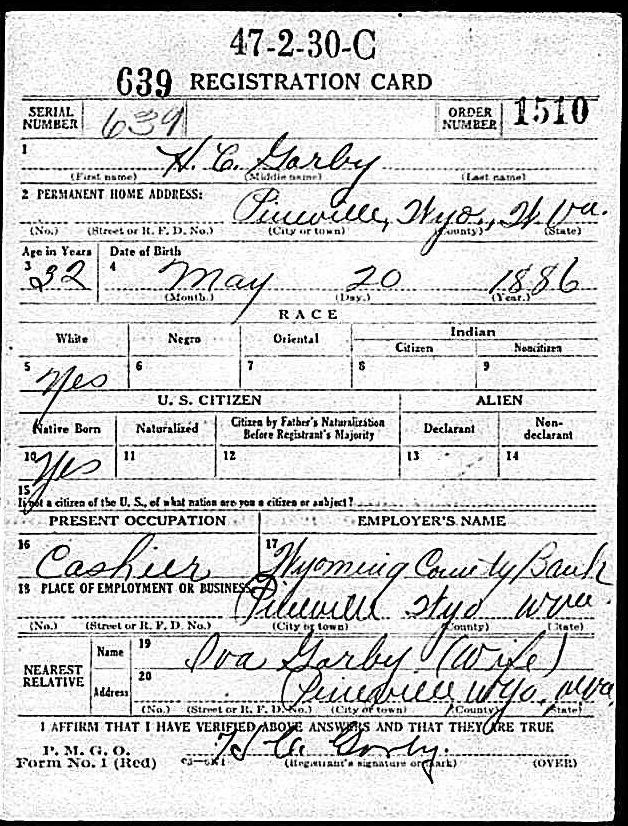 47-2-30-C
639 REGISTRATION CARD
SERIAL NUMBER 639 ORDER NUMBER 1510
1 H. C. Gorby
(First name) (Middle name) (Last name)
2 PERMANENT HOME ADDRESS: Pineville, Wyo., W. Va.
(No.) (Street or R. F. D. No.) (City or town) (County) (State)
Age in Years Date of Birth
3 32 4 May 20 1886
(Month.) (Day.) (Year.)
RACE
White Negro Oriental Indian
Citizen Noncitizen
5 Yes 6 7 8 9
U. S. CITIZEN ALIEN
Native Born Naturalized Citizen by Father's Naturalization Before Registrant's Majority Declarant Non-declarant
10 Yes 11 12 13 14
15
If not a citizen of the U. S., of what nation are you a citizen or subject?
PRESENT OCCUPATION EMPLOYER'S NAME
16 Cashier 17 Wyoming County Bank
18 PLACE OF EMPLOYMENT OR BUSINESS: Pineville Wyo W Va.
(No.) (Street or R. F. D. No.) (City or town) (County) (State)
NEAREST RELATIVE Name 19 Iva Gorby (Wife)
Address 20 Pineville Wyo. W Va.
(No.) (Street or R. F. D. No.) (City or town) (County) (State)
I AFFIRM THAT I HAVE VERIFIED ABOVE ANSWERS AND THAT THEY ARE TRUE
P. M. G. O.
Form No. 1 (Red) H C. Gorby.
(Registrant's signature or mark) (OVER)